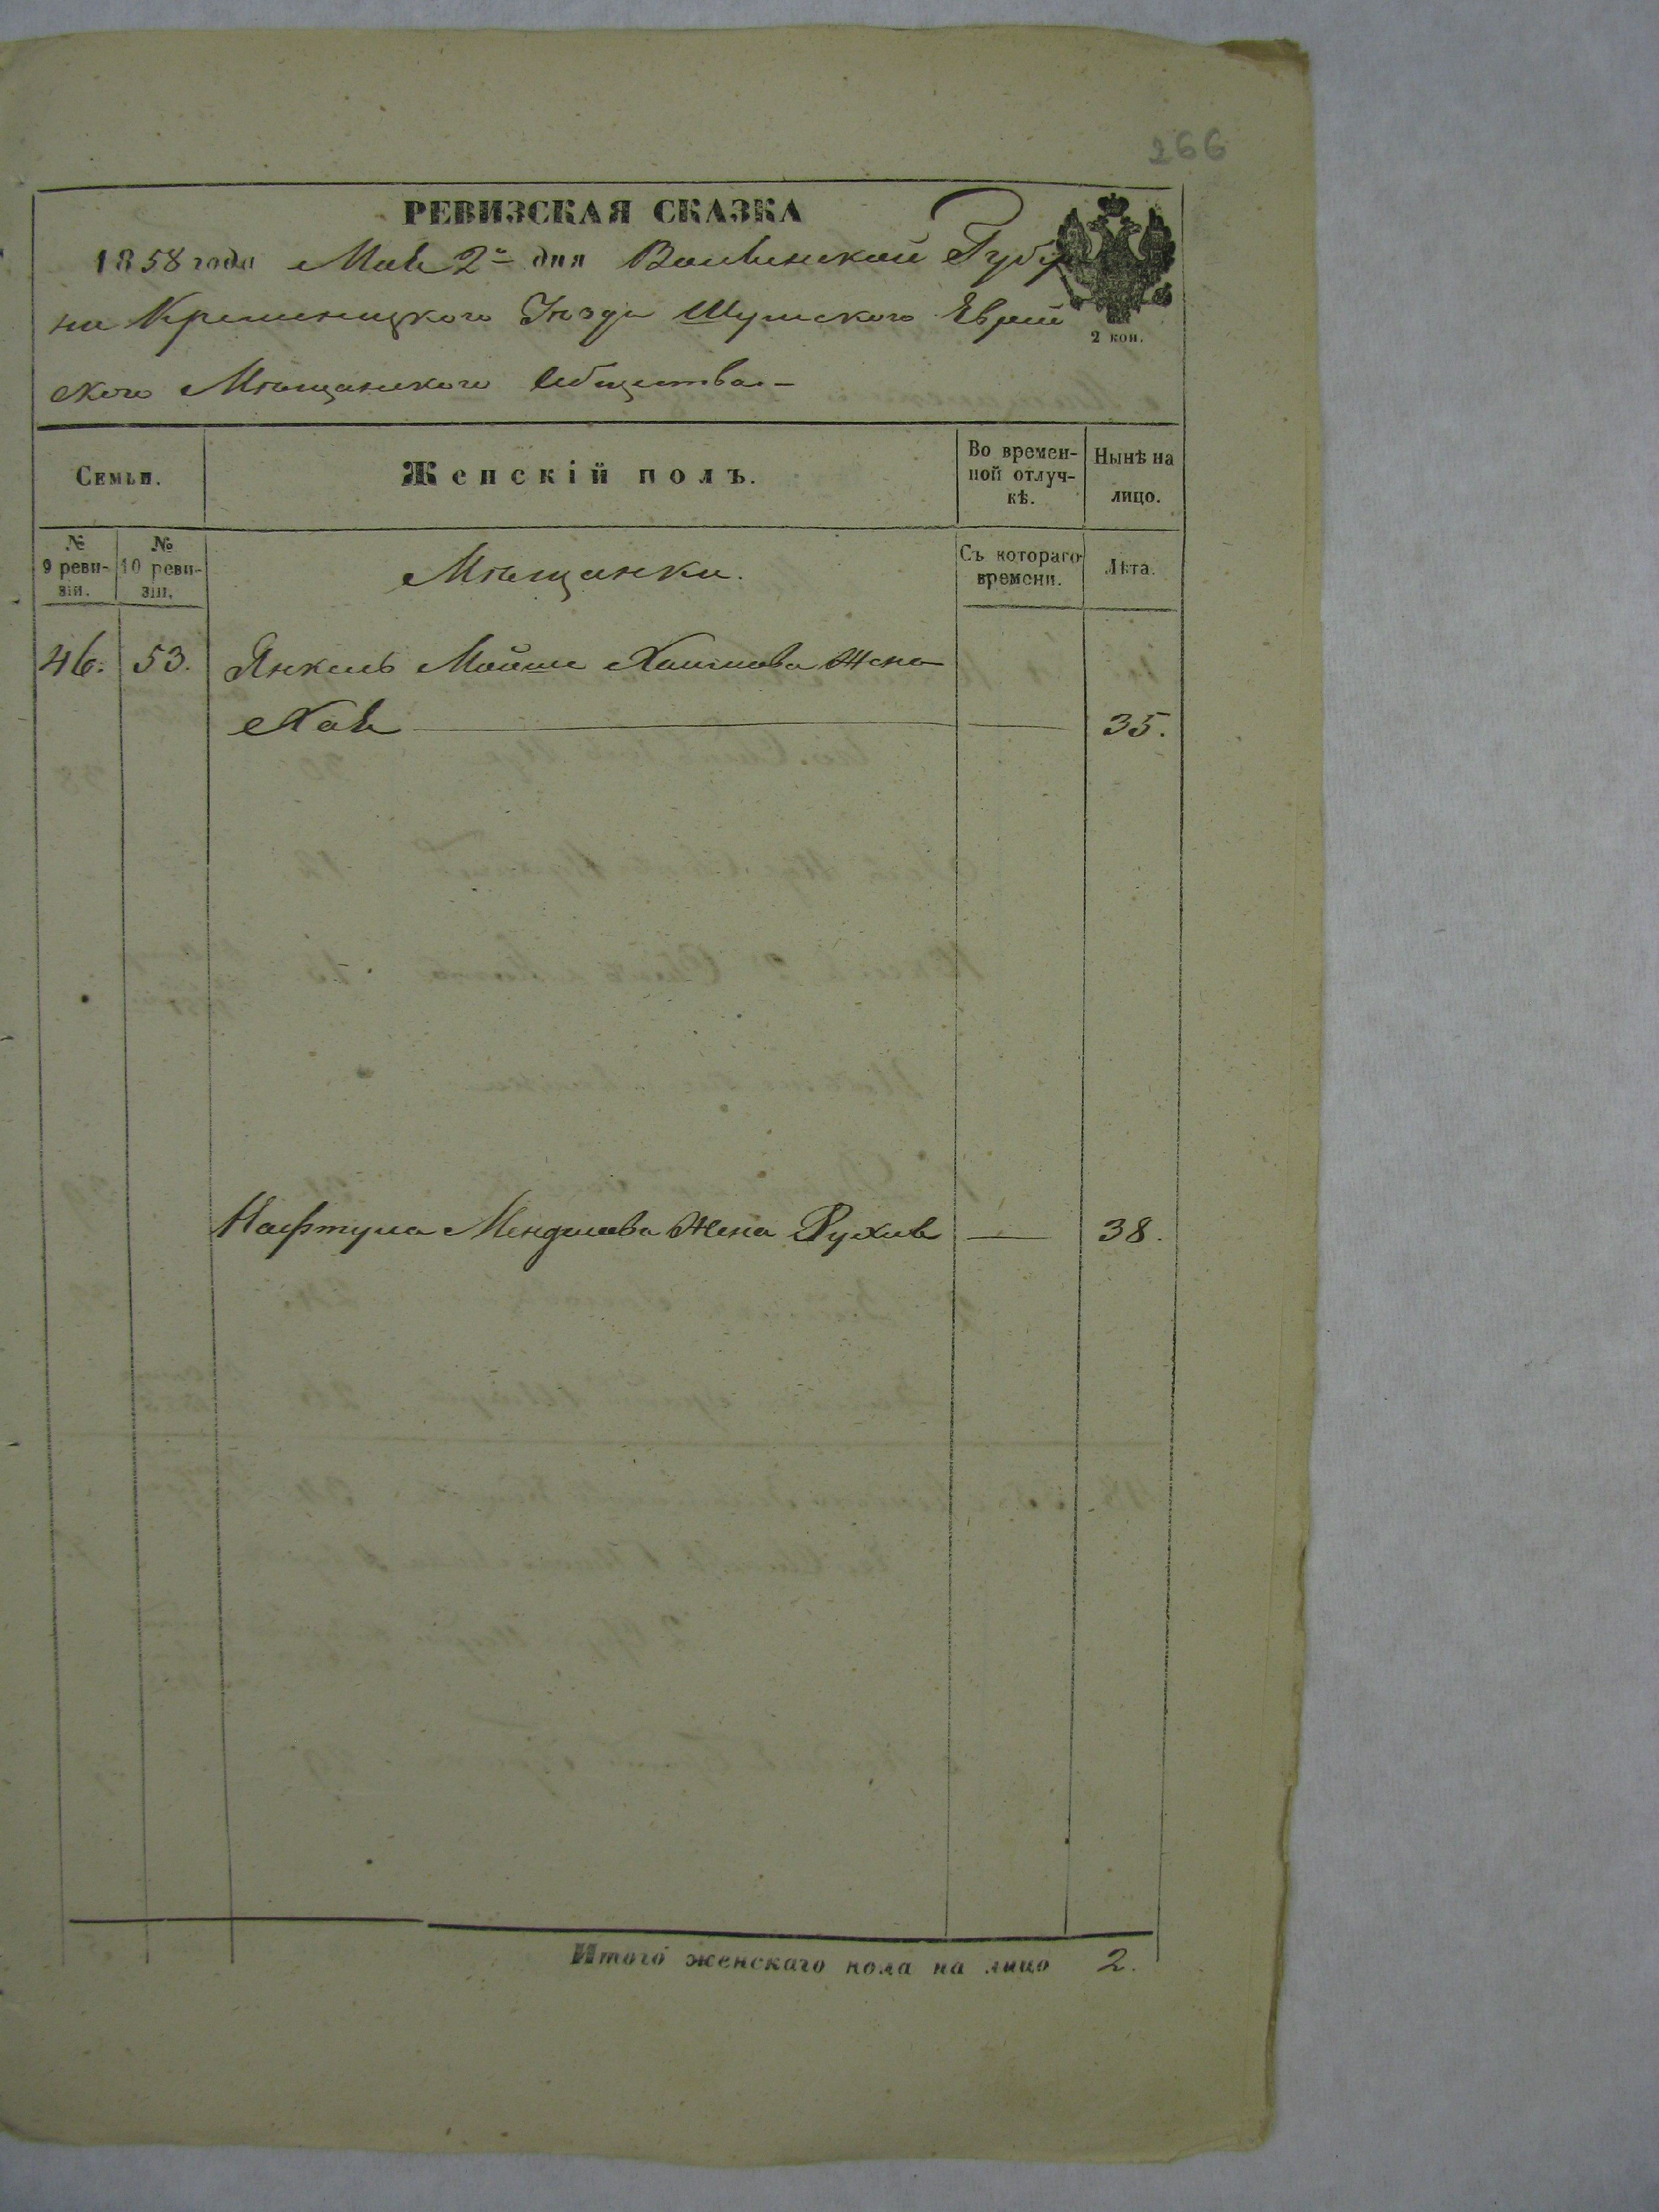 266
РЕВИЗСКАЯ СКАЗКА
1858 года Мая 2го дня Волынской Губер
нии Кременецкого Уѣзда Шумского Еврей
2 коп.
ского Мѣщанского Общества.-
Семьи.
Женскій полъ.
Во времен-
ной отлуч-
кѣ.
Нынѣ на
лицо.
№
9 реви-
зіи.
№
10 реви-
зіи.
Мѣщанки.
Съ котораго
времени.
Лѣта.
46. 53. Янкель Мойше Хаимова Жена
Хая 35.
Нафтула Менделева Жена Рухля 38.
Итого женскаго пола на лицо 2.